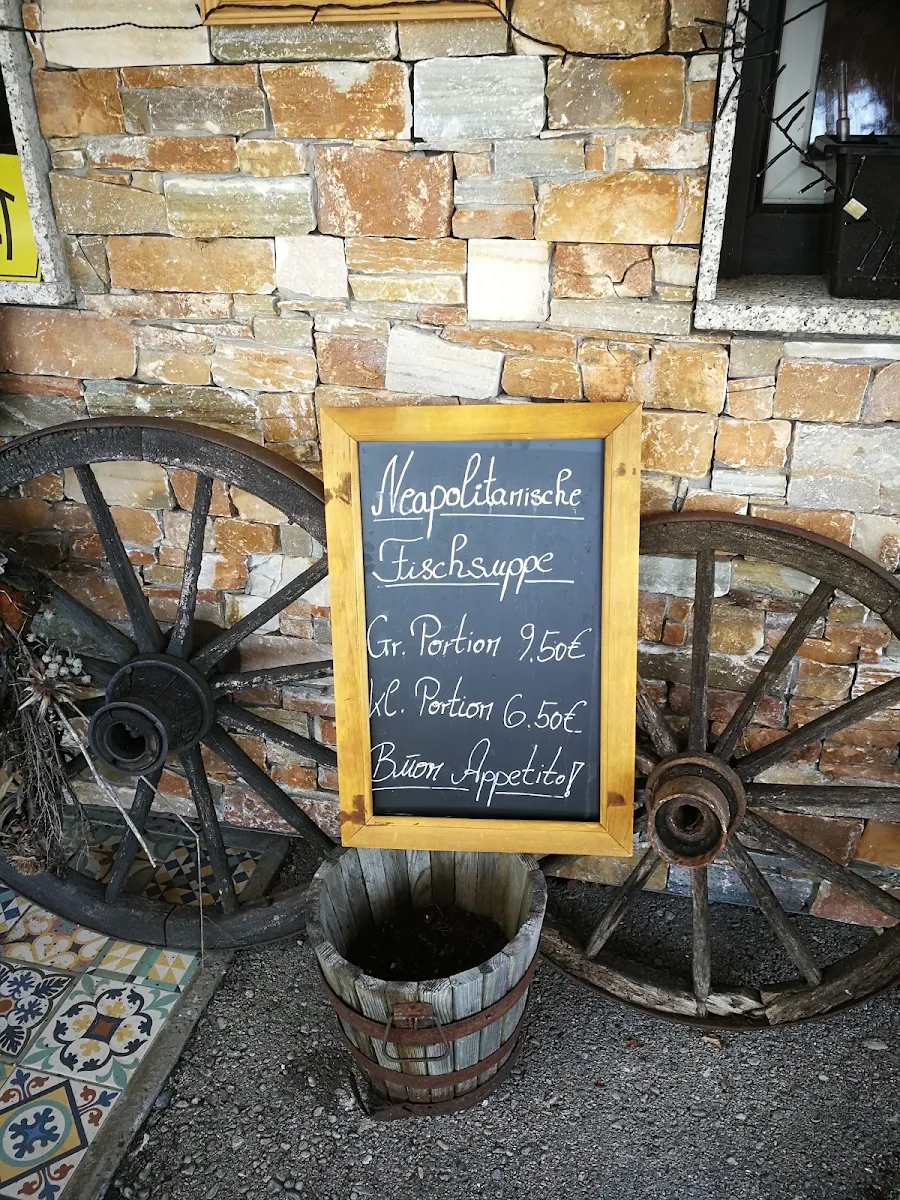 Neapolitanische
Fischsuppe
Gr. Portion 9,50€
kl. Portion 6.50€
Buon Appetito!